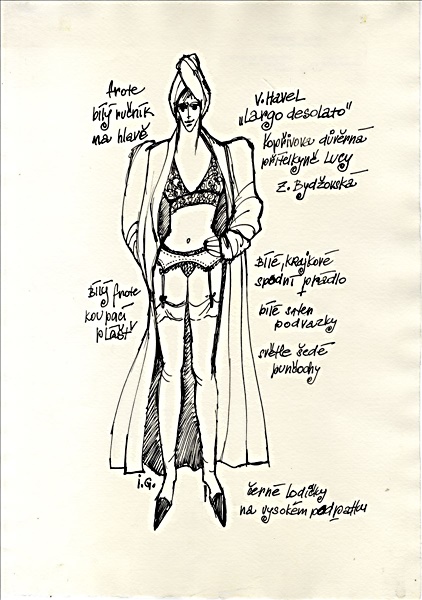 frote
bílý ručník
na hlavě
V. Havel
„Largo desolato"
Kopřivova důvěrná
přítelkyně Lucy
Z. Bydžovská
Bílé, krajkové
spodní prádlo
+
bílé saten
podvazky
světle šedé
punčochy
Bílý frote
koupací
plášť
I.G.
černé lodičky
na vysokém podpatku